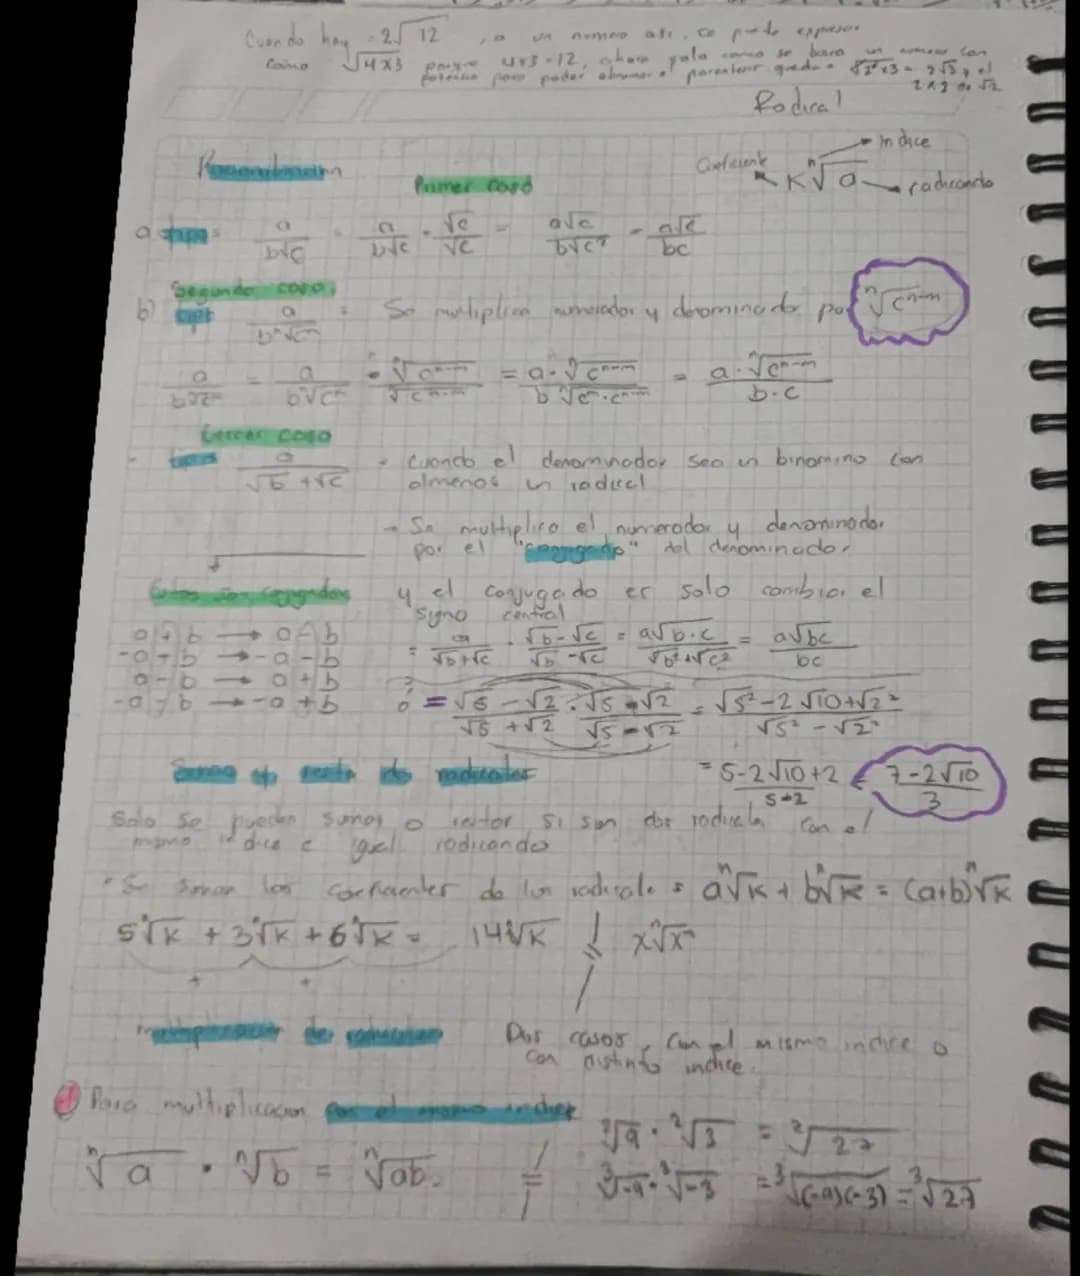 Cuando hay -2√12, o un numero asi, se puede expresar
como √4x3 porque 4x3=12, ahora
potencia para poder
2√3, el
Radical
indice
Coeficiente
K ⁿ√a
radicando
Primer caso
a) tipo = a/b√c = a/b√c · √c/√c = a√c/b√c² = a√c/bc
Segundo caso
b) a/b ⁿ√cᵐ = Se multiplica numerador y denominador por ⁿ√cⁿ⁻ᵐ
a/b ⁿ√cᵐ = a/b ⁿ√cᵐ · ⁿ√cⁿ⁻ᵐ/ⁿ√cⁿ⁻ᵐ = a · ⁿ√cⁿ⁻ᵐ/b ⁿ√cᵐ·cⁿ⁻ᵐ = a · ⁿ√cⁿ⁻ᵐ/b·c
tercer caso
tipo a/√b+√c - cuando el denominador sea un binomino con
almenos un radical
- Se multiplica el numerador y denominador
por el "conjugado" del denominador
Estos son conjugados
y el conjugado es solo cambiar el
signo central
a+b → a-b
-a+b → -a-b
a-b → a+b
-a-b → -a+b
= a/√b+√c · √b-√c/√b-√c = a√b·c/√b²+√c² = a√bc/bc
ó = √5-√2/√5+√2 · √5-√2/√5-√2 = √5²-2√10+√2²/√5²-√2²
= 5-2√10+2/5-2 = 7-2√10/3
Suma y resta de radicales
Solo se pueden sumar o restar si son dos radicales con el
mismo indice e igual radicando
· Se suman los coeficientes de los radicales = aⁿ√k + bⁿ√k = (a+b)ⁿ√k
5ⁿ√k + 3ⁿ√k + 6ⁿ√k = 14ⁿ√k
+ +
multiplicacion de radicales
Dos casos, con el mismo indice o
con distinto indice.
Para multiplicacion con el mismo indice
ⁿ√a · ⁿ√b = ⁿ√ab.
²√9 · ²√3 = ²√27
³√-9 · ³√-3 = ³√(-9)(-3) = ³√27